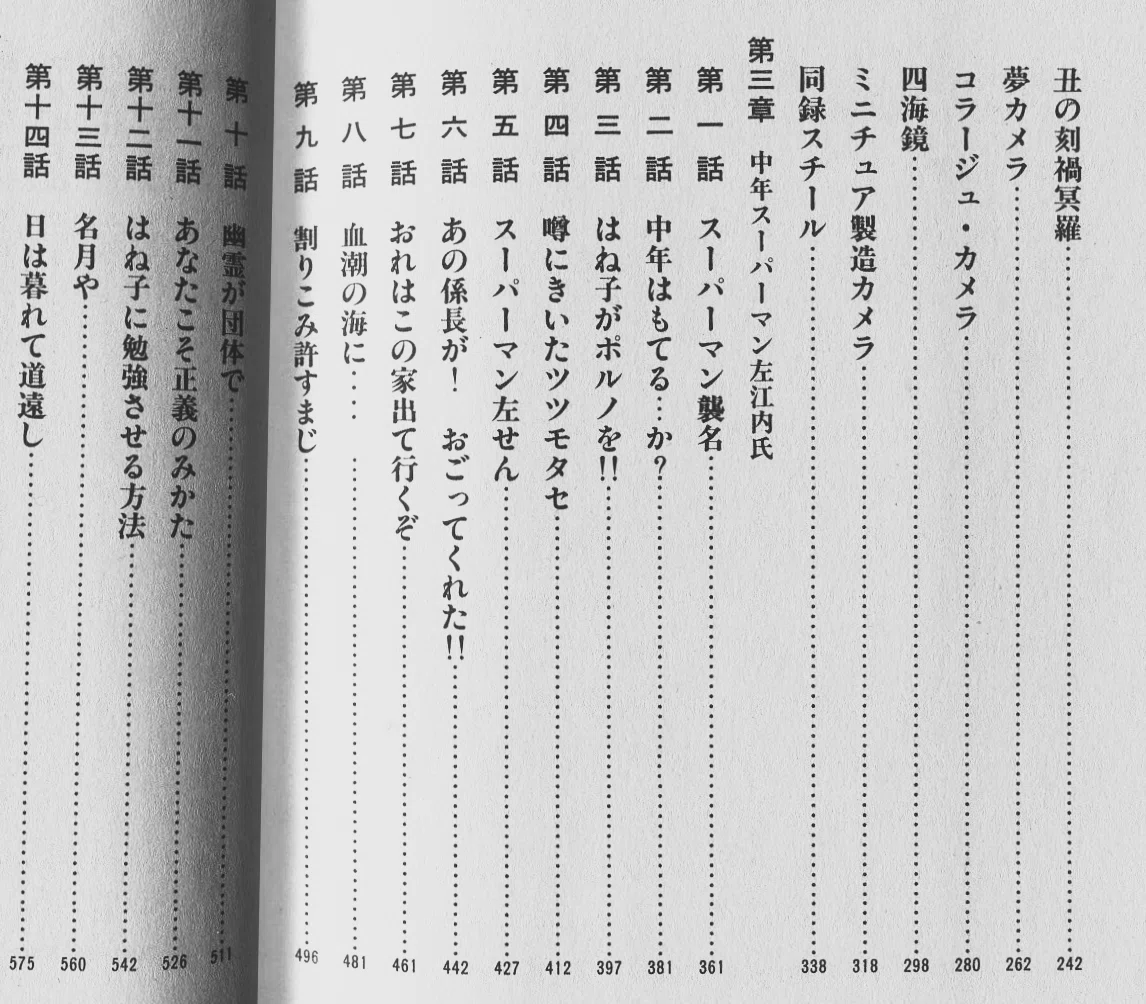 丑の刻禍冥羅……242
夢カメラ……262
コラージュ・カメラ……280
四海鏡……298
ミニチュア製造カメラ……318
同録スチール……338
第三章 中年スーパーマン左江内氏
第一話 スーパーマン襲名……361
第二話 中年はもてる…か？……381
第三話 はね子がポルノを!!……397
第四話 噂にきいたツツモタセ……412
第五話 スーパーマン左せん……427
第六話 あの係長が！ おごってくれた!!……442
第七話 おれはこの家出て行くぞ……461
第八話 血潮の海に… ……481
第九話 割りこみ許すまじ……496
第十話 幽霊が団体で……511
第十一話 あなたこそ正義のみかた……526
第十二話 はね子に勉強させる方法……542
第十三話 名月や……560
第十四話 日は暮れて道遠し……575